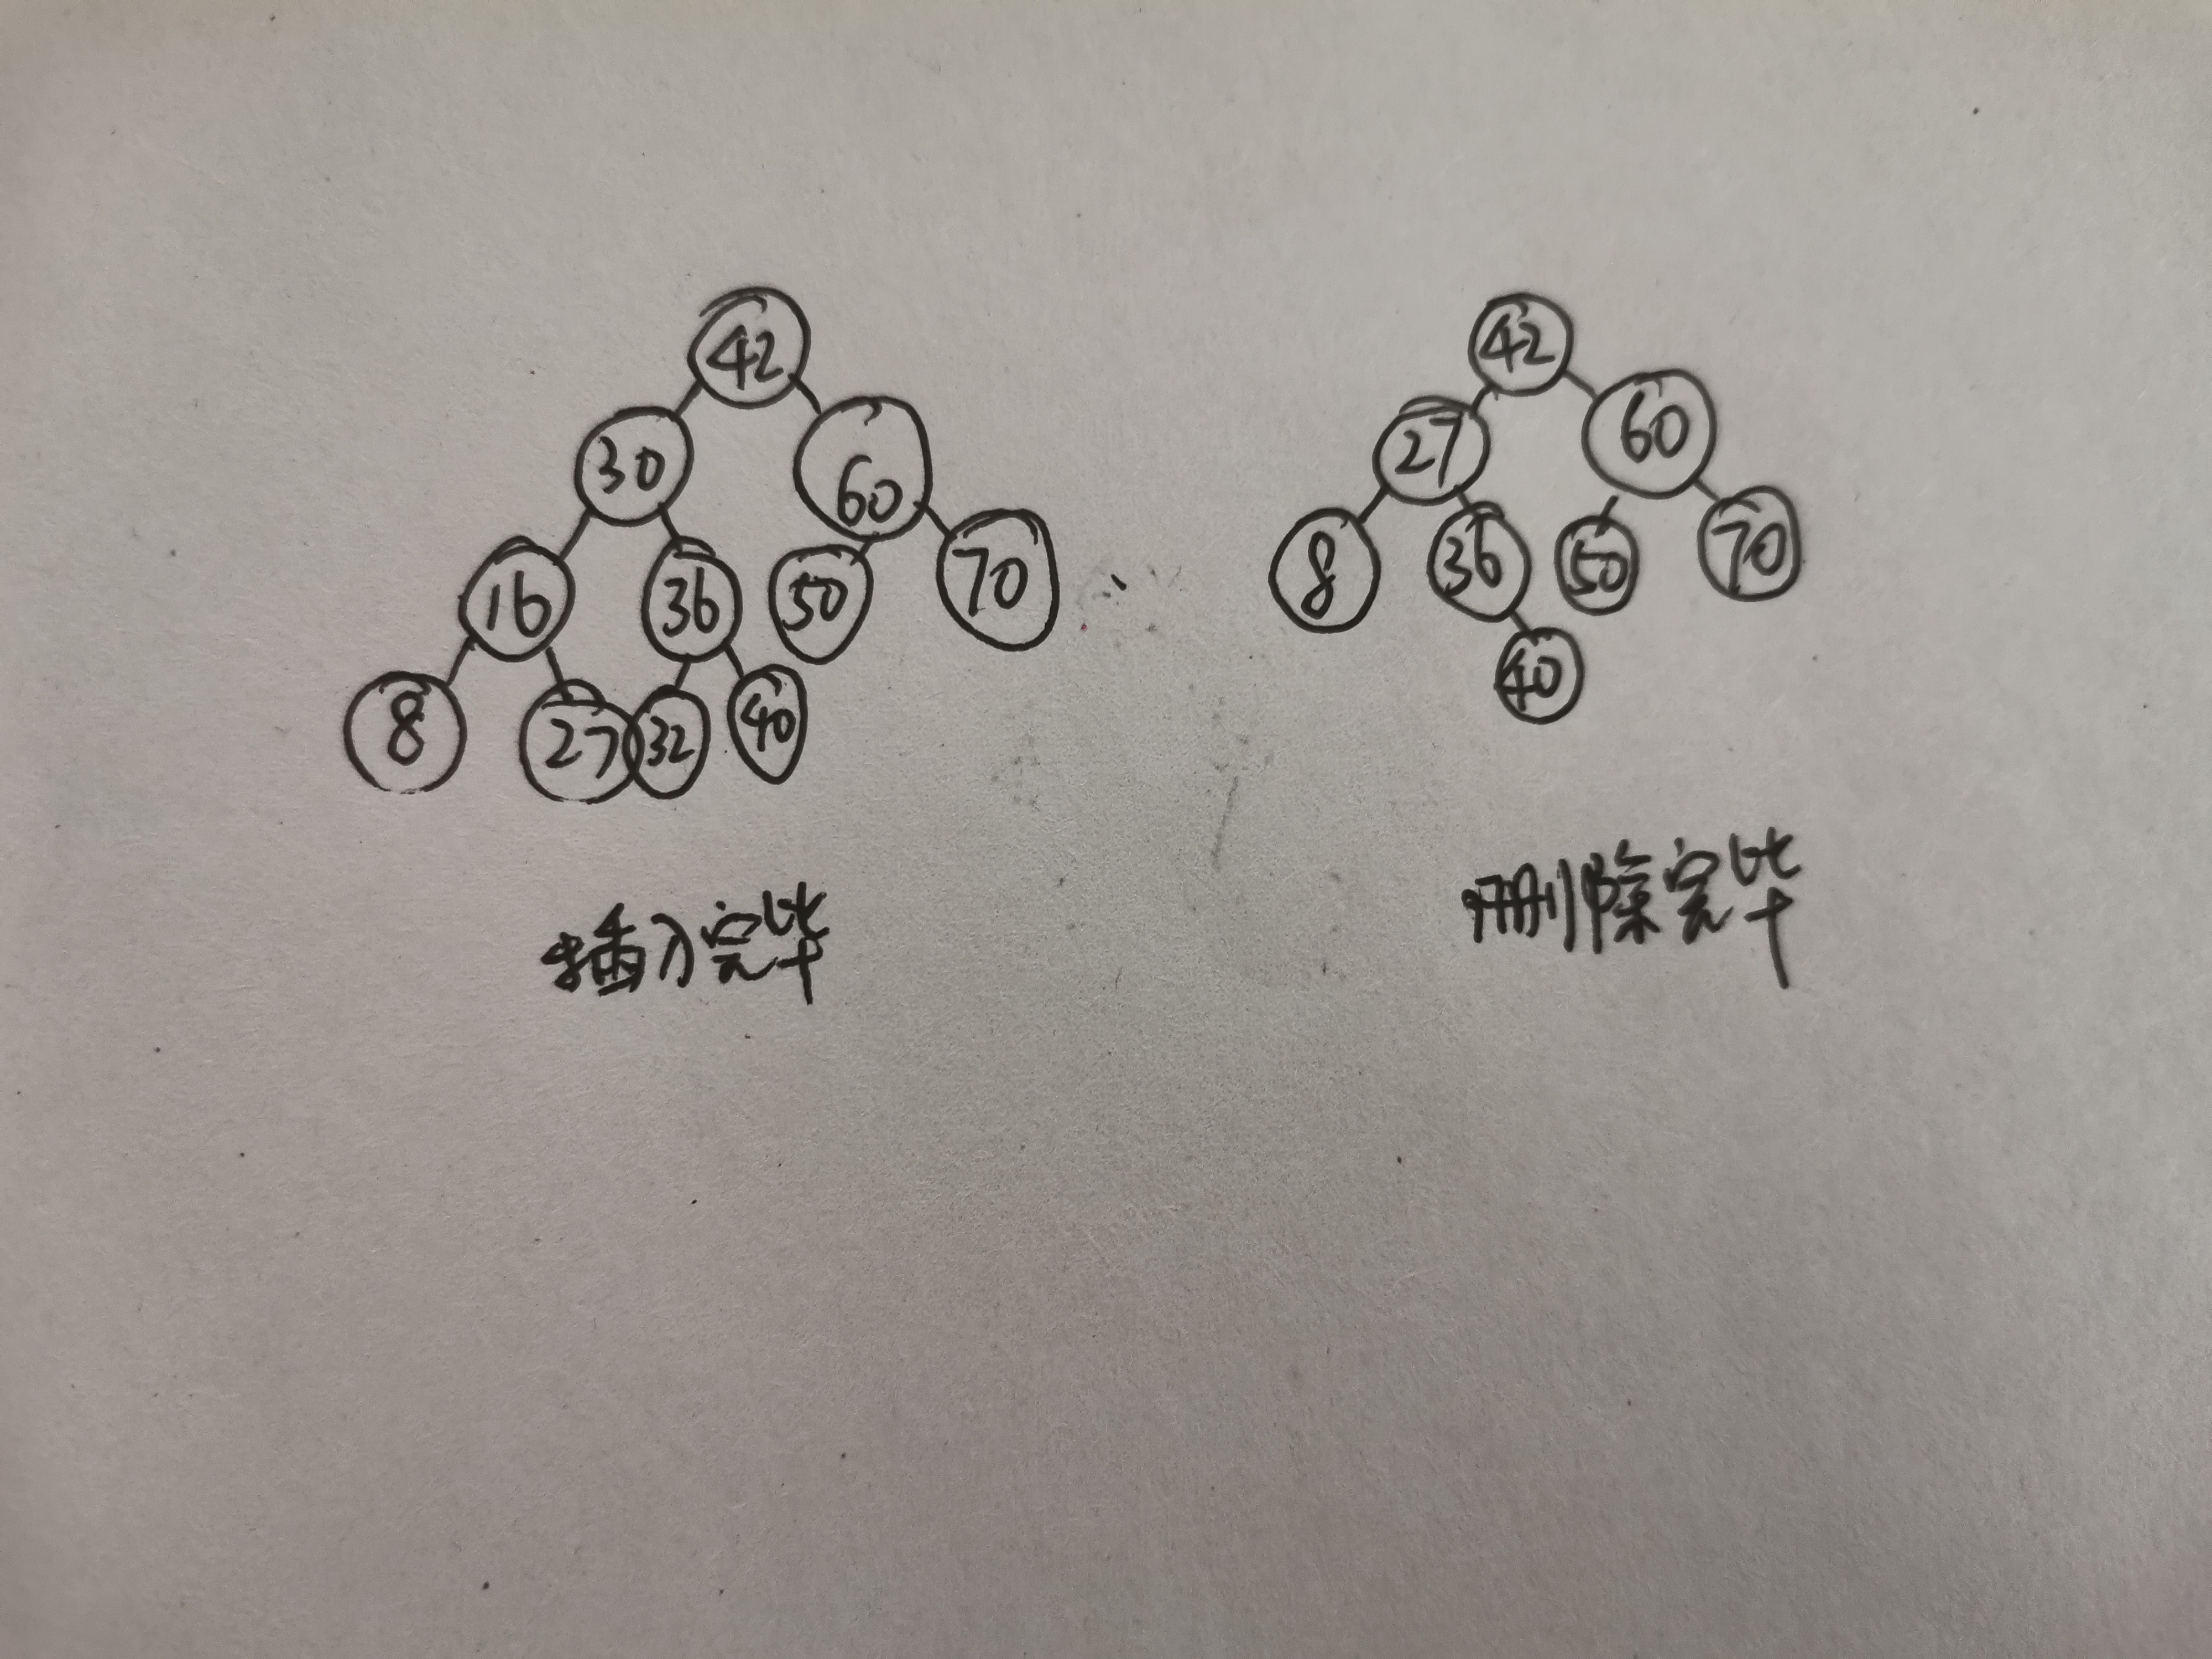 42
30 60
16 36 50 70
8 27 32 40
插入完毕
42
27 60
8 36 50 70
40
删除完毕